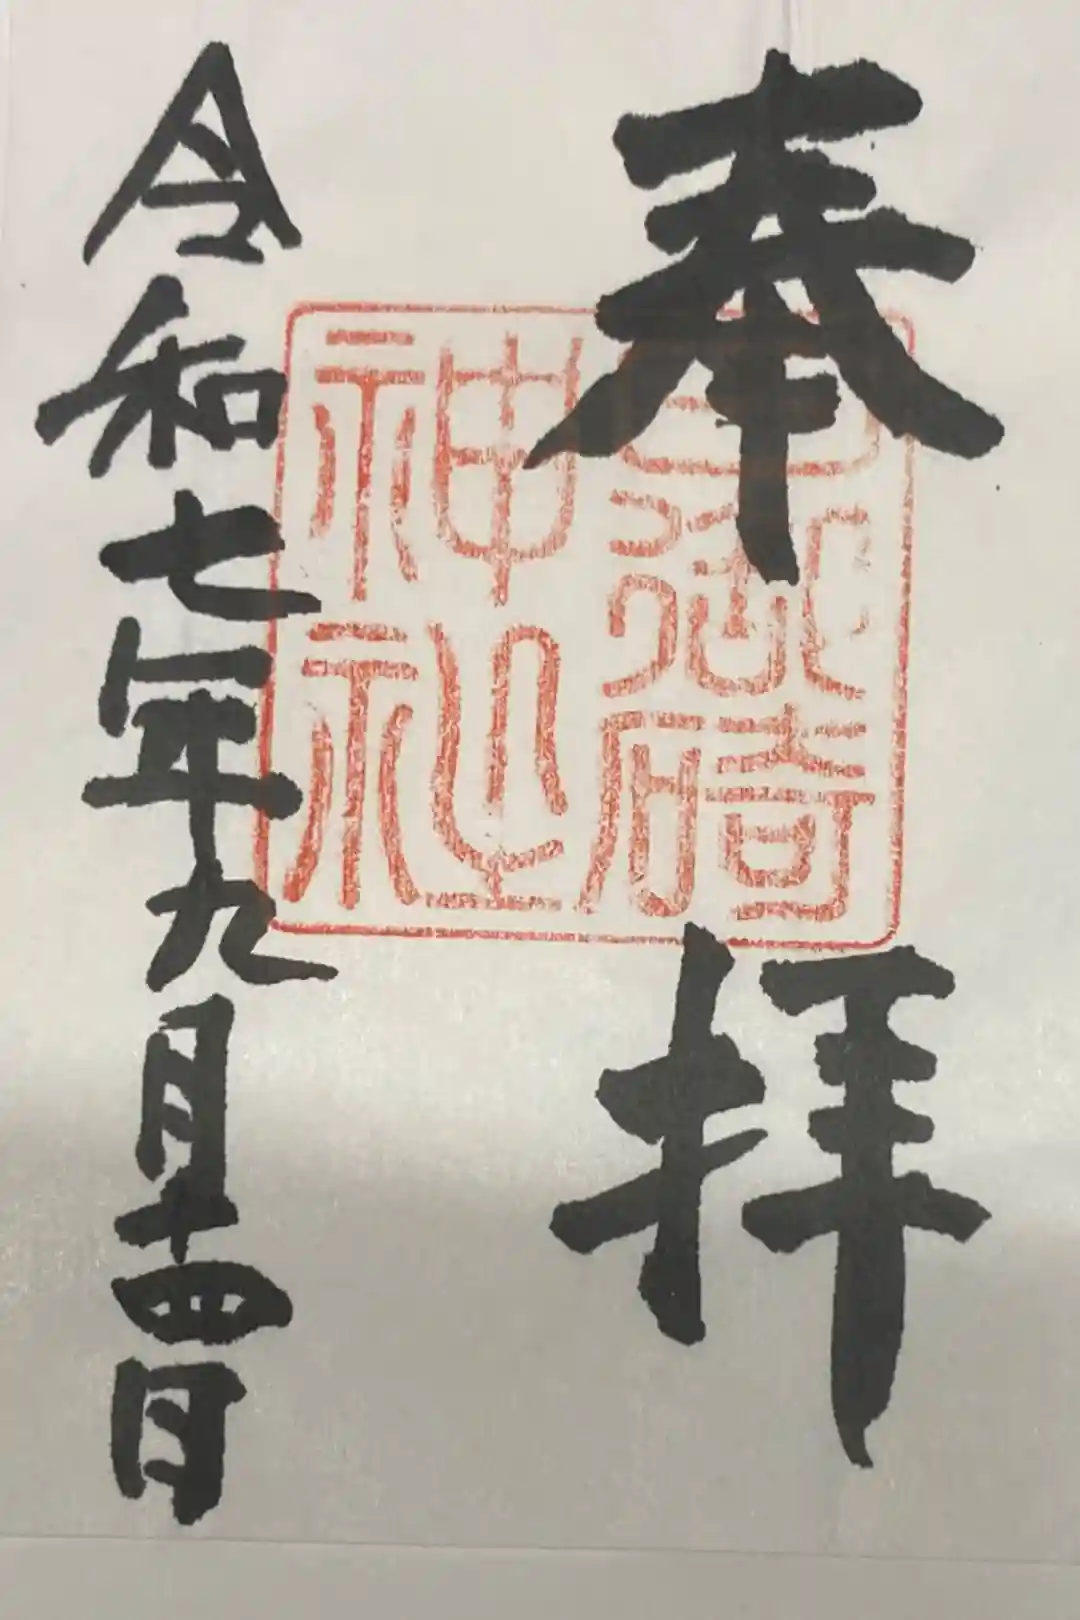 奉拝
日御碕
神社
令和七年九月十四日